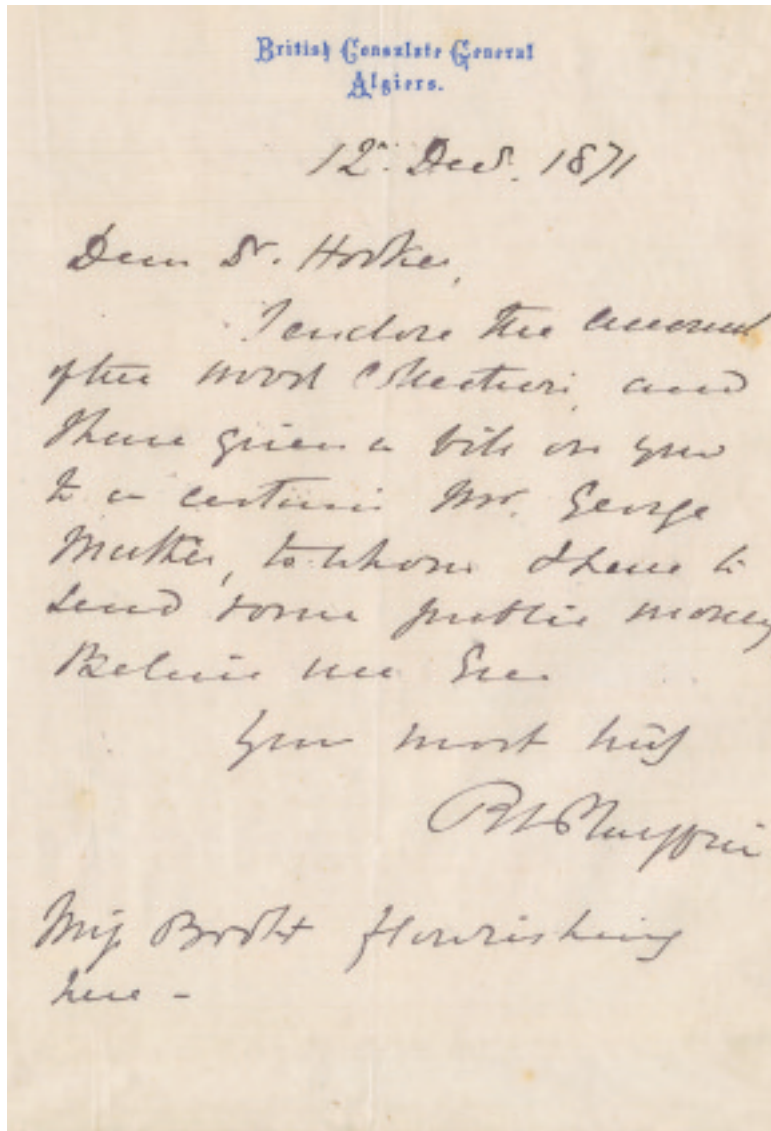 British Consulate General
Algiers.
12th Decr. 1871
Dear Dr. Hooker,
I enclose the account
of the wood collection, and
I have given a bill on you
to a certain Mr. George
to whom I have to
send some public money
Believe me Ever
Your most truly
R L Playfair
Miss flourishing
here -